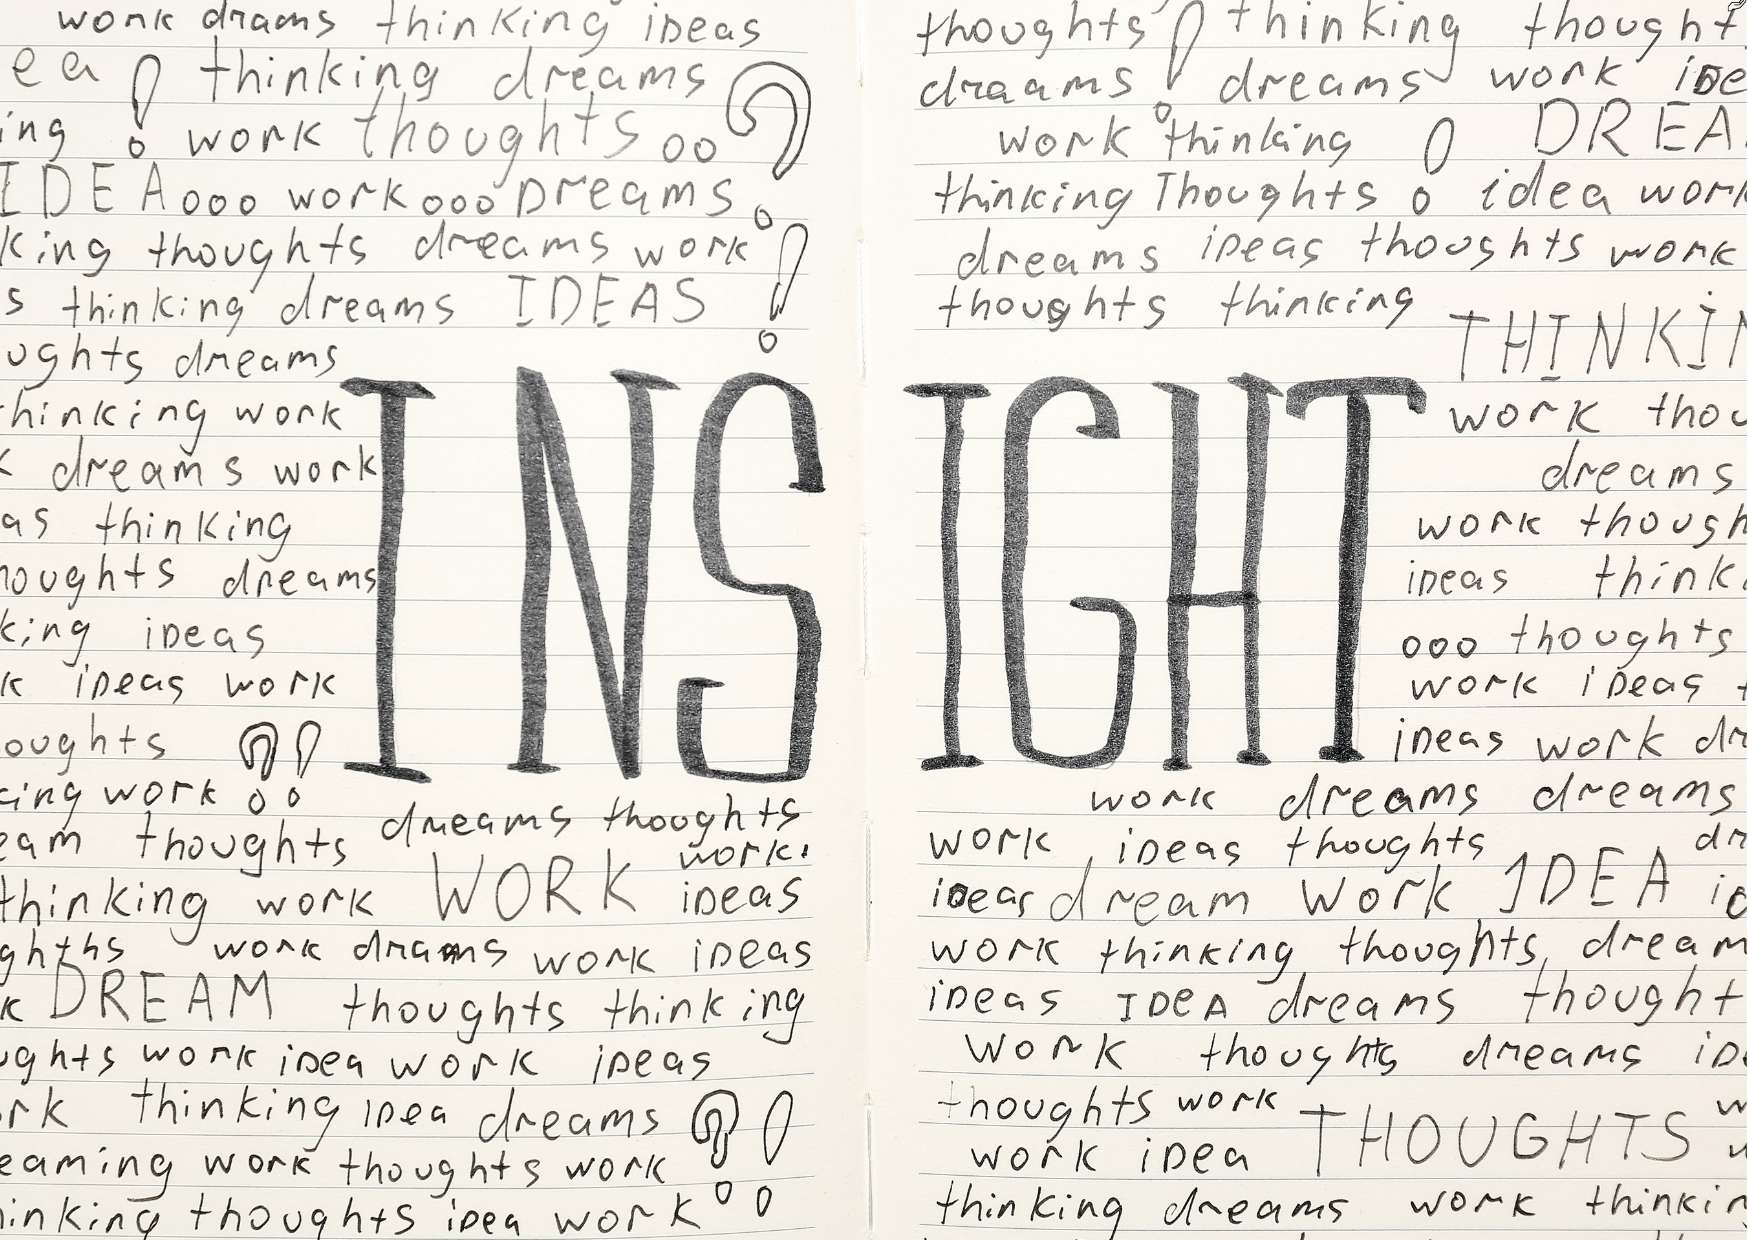 work drams thinking ideas
ea! thinking dreams
ing work thoughts oo?
IDEA ooo work ooo Dreams
king thoughts dreams work
s thinking dreams IDEAS!
ughts dreams
hinking work
k dreams work
as thinking
houghts dreams
king ideas
k ideas work
oughts ?!
king work
eam thoughts dreams thoughts
work.
thinking work WORK ideas
ghths work dreams work ideas
k DREAM thoughts thinking
ughts work idea work ideas
rk thinking idea dreams ?!
eaming work thoughts work
hinking thoughts idea work
INSIGHT
thoughts! thinking thought
draams dreams work ide
work thinking ! DREA
thinking Thoughts idea work
dreams ideas thoughts work
thoughts thinking
THINKIN
work thou
dreams
work though
ideas think
ooo thoughts
work ideas t
ideas work dr
work dreams dreams
work, ideas thoughts dr
ideas dream Work IDEA id
work thinking thoughts, dream
ideas IDEA dreams thought
Work thoughts dreams ide
thoughts work THOUGHTS w
work idea w
thinking dreams work thinkin